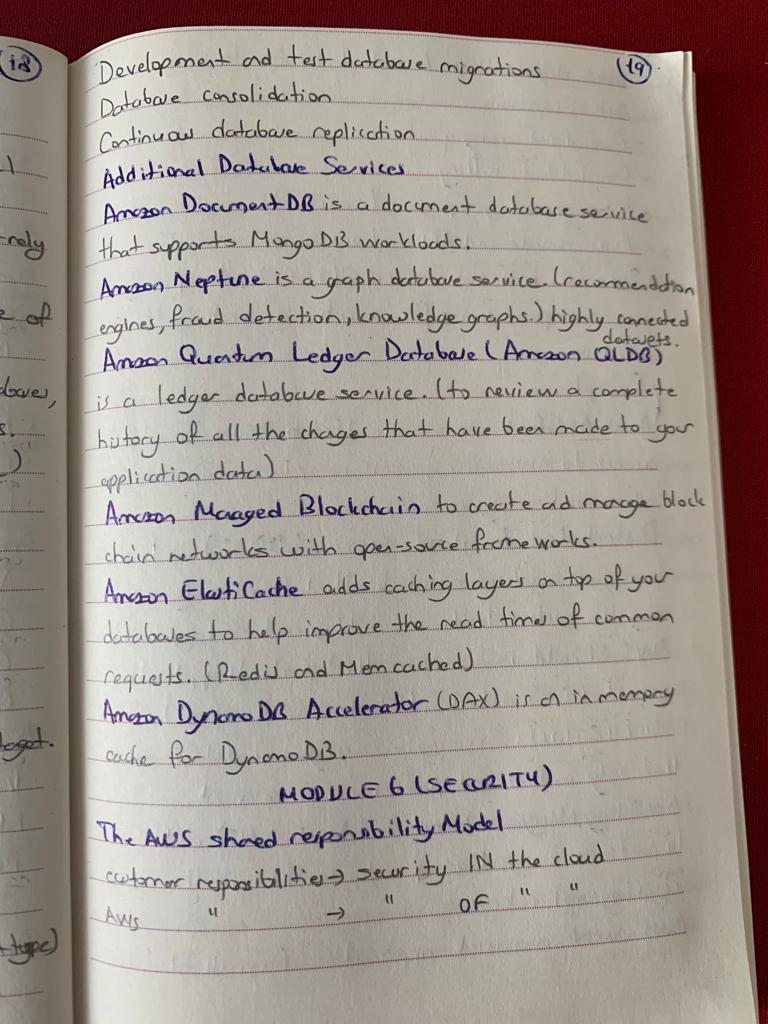 18
19
Development and test database migrations
Database consolidation
Continuous database replication
Additional Database Services
Amazon DocumentDB is a document database service
that supports MongoDB workloads.
Amazon Neptune is a graph database service. (recommendation
engines, fraud detection, knowledge graphs.) highly connected
datasets.
Amazon Quantum Ledger Database (Amazon QLDB)
is a ledger database service. (to review a complete
history of all the changes that have been made to your
application data)
Amazon Managed Blockchain to create and manage block
chain networks with open-source frameworks.
Amazon ElastiCache adds caching layers on top of your
databases to help improve the read times of common
requests. (Redis and Memcached)
Amazon DynamoDB Accelerator (DAX) is an in memory
cache for DynamoDB.
MODULE 6 (SECURITY)
The AWS shared responsibility Model
customer responsibilities → security IN the cloud
AWS " → " OF " "
-rely
e of
s.
)
type)